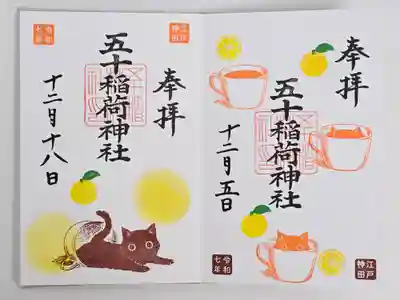 江戸
神田
奉拝
五十稲荷神社
十二月十八日
令和
七年
奉拝
五十稲荷神社
十二月五日
江戸
神田
令和
七年